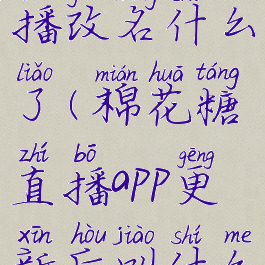 播改名什么
liǎo mián huā táng
了(棉花糖
zhí bō gēng
直播app更
xīn hòu jiào shí me
新后叫什么